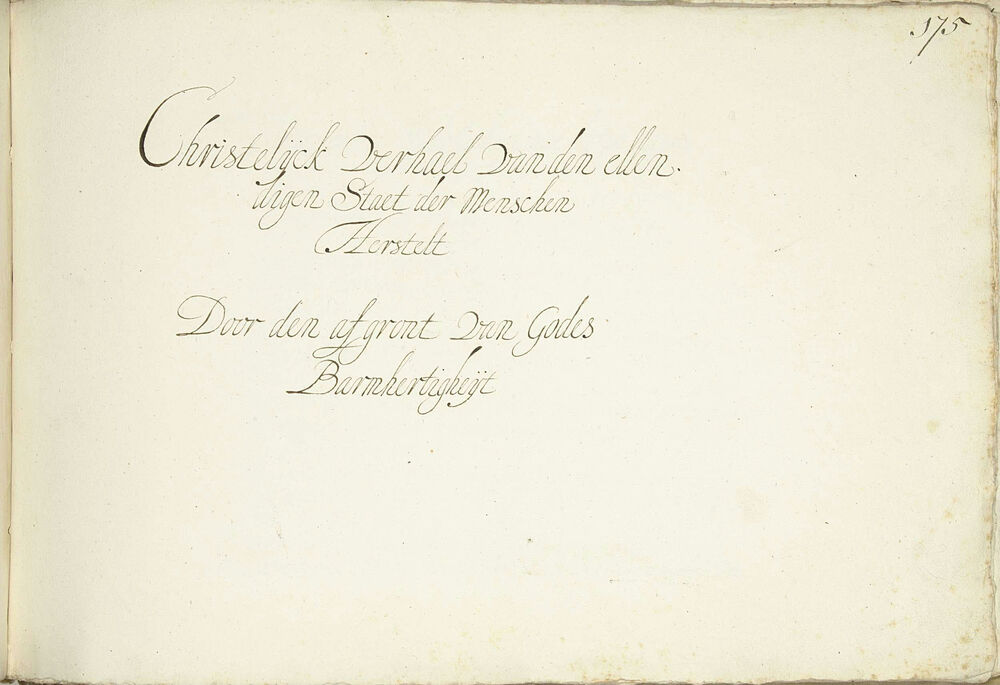 175
Christelÿck Verhael van den ellen-
digen Staet der Menschen
Herstelt
Door den afgront van Godes
Barmhertigheÿt